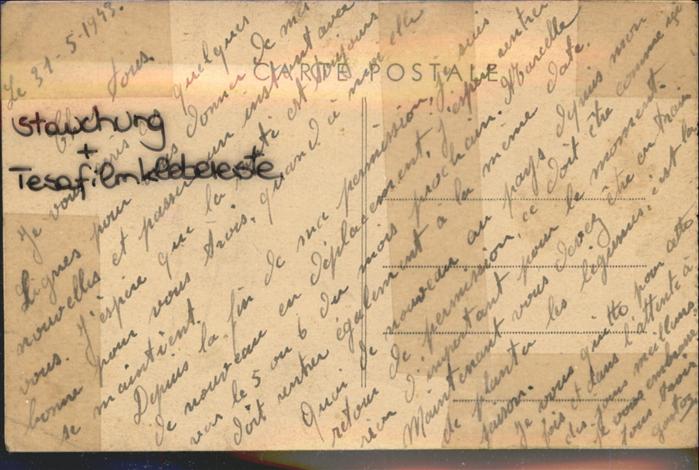 CARTE POSTALE
Stauchung
+
Tesafilmklebereste
Le 31-5-1943.
tous.
Je vous écris ces quelques
lignes pour vous donner de mes
nouvelles et passer un instant avec
vous. J'espère que la santé est toujours
bonne pour vous trois, quand à moi elle
se maintient.
Depuis la fin de ma permission, je suis
de nouveau en déplacement, j'espère rentrer
vers le 5 ou 6 du mois prochain. Marcelle
doit rentrer également à la même date.
Quoi de nouveau au pays depuis mon
retour de permission, ce doit être comme ici
rien d'important pour le moment.
Maintenant vous devez être en train
de planter les légumes, c'est la
saison.
Je vous quitte pour cette
fois et dans l'attente
des jours meilleurs
je vous embrasse
tous trois
Gaston